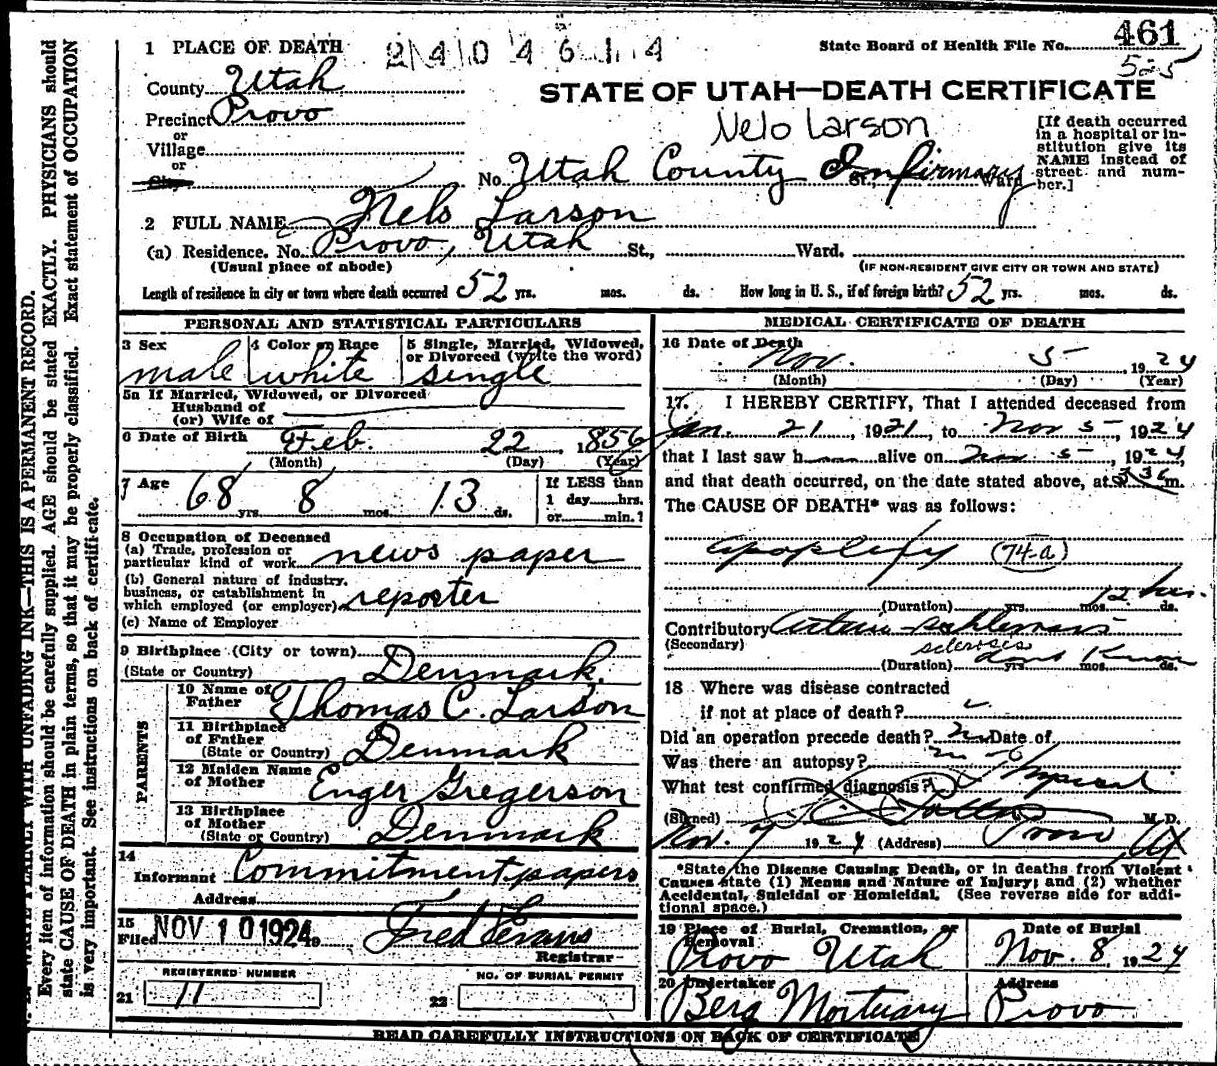 1 PLACE OF DEATH
2 4 0 4 6 1 4
State Board of Health File No. 461
525
County Utah
STATE OF UTAH—DEATH CERTIFICATE
Precinct Provo
or
Village
or
City
Nelo Larson
[If death occurred in a hospital or institution give its NAME instead of street and number.]
No. Utah County Infirmary St., Ward
2 FULL NAME Nels Larson
(a) Residence. No. Provo, Utah St., Ward.
(Usual place of abode)
(IF NON-RESIDENT GIVE CITY OR TOWN AND STATE)
Length of residence in city or town where death occurred 52 yrs. mos. ds. How long in U. S., if of foreign birth? 52 yrs. mos. ds.
PERSONAL AND STATISTICAL PARTICULARS
3 Sex
male
4 Color or Race
white
5 Single, Married, Widowed,
or Divorced (write the word)
single
5a If Married, Widowed, or Divorced
Husband of
(or) Wife of
6 Date of Birth Feb. 22, 1856
(Month) (Day) (Year)
7 Age
68 yrs 8 mos. 13 ds.
If LESS than
1 day hrs.
or min.?
8 Occupation of Deceased
(a) Trade, profession or
particular kind of work news paper
(b) General nature of industry,
business, or establishment in
which employed (or employer) reporter
(c) Name of Employer
9 Birthplace (City or town)
(State or Country) Denmark.
PARENTS
10 Name of
Father Thomas C. Larson
11 Birthplace
of Father
(State or Country) Denmark
12 Maiden Name
of Mother Enger Gregerson
13 Birthplace
of Mother
(State or Country) Denmark
14
Informant Commitment papers
Address
15
Filed NOV 10 1924
Fred Evans
Registrar
REGISTERED NUMBER
NO. OF BURIAL PERMIT
21 11
22
MEDICAL CERTIFICATE OF DEATH
16 Date of Death
Nov. 5, 1924
(Month) (Day) (Year)
17. I HEREBY CERTIFY, That I attended deceased from
Jan. 21, 1921, to Nov 5, 1924
that I last saw h alive on Nov 5, 1924,
and that death occurred, on the date stated above, at m.
The CAUSE OF DEATH* was as follows:
apoplexy (74-a)
(Duration) yrs. mos. ds. 12 hrs.
Contributory
(Secondary)
sclerosis
(Duration) yrs mos. ds. dont Know
18 Where was disease contracted
if not at place of death?
Did an operation precede death? Date of
Was there an autopsy?
What test confirmed diagnosis?
(Signed) M. D.
Nov. 7 1924 (Address) Provo Ut
*State the Disease Causing Death, or in deaths from Violent
Causes state (1) Means and Nature of Injury; and (2) whether
Accidental, Suicidal or Homicidal. (See reverse side for additional space.)
19 Place of Burial, Cremation, or
Removal
Provo Utah
Date of Burial
Nov. 8, 1924
20 Undertaker
Berg Mortuary
Address
Provo
READ CAREFULLY INSTRUCTIONS ON BACK OF CERTIFICATE
WRITE PLAINLY WITH UNFADING INK—THIS IS A PERMANENT RECORD.
Every item of information should be carefully supplied. AGE should be stated EXACTLY. PHYSICIANS should
state CAUSE OF DEATH in plain terms, so that it may be properly classified. Exact statement of OCCUPATION
is very important. See instructions on back of certificate.